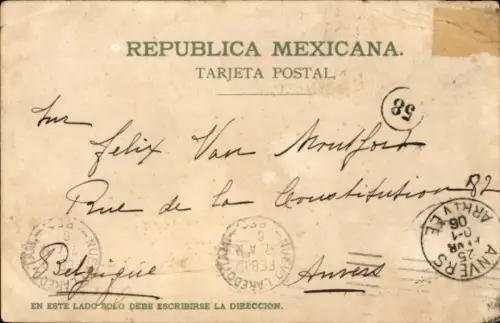 REPUBLICA MEXICANA.
TARJETA POSTAL.
58
Felix Van Montfort
Rue de la Constitution 82
Belgique Anvers
ANVERS
ARRIVÉE
25
0-1
06
NUEVO LAREDO
FEB
EN ESTE LADO SOLO DEBE ESCRIBIRSE LA DIRECCION.